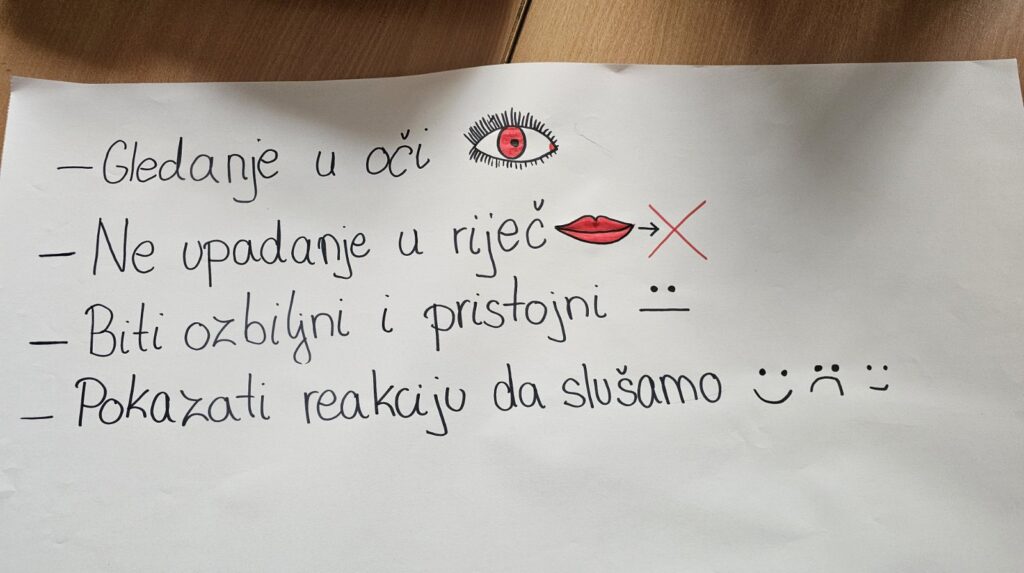 – Gledanje u oči
– Ne upadanje u riječ
– Biti ozbiljni i pristojni
– Pokazati reakciju da slušamo